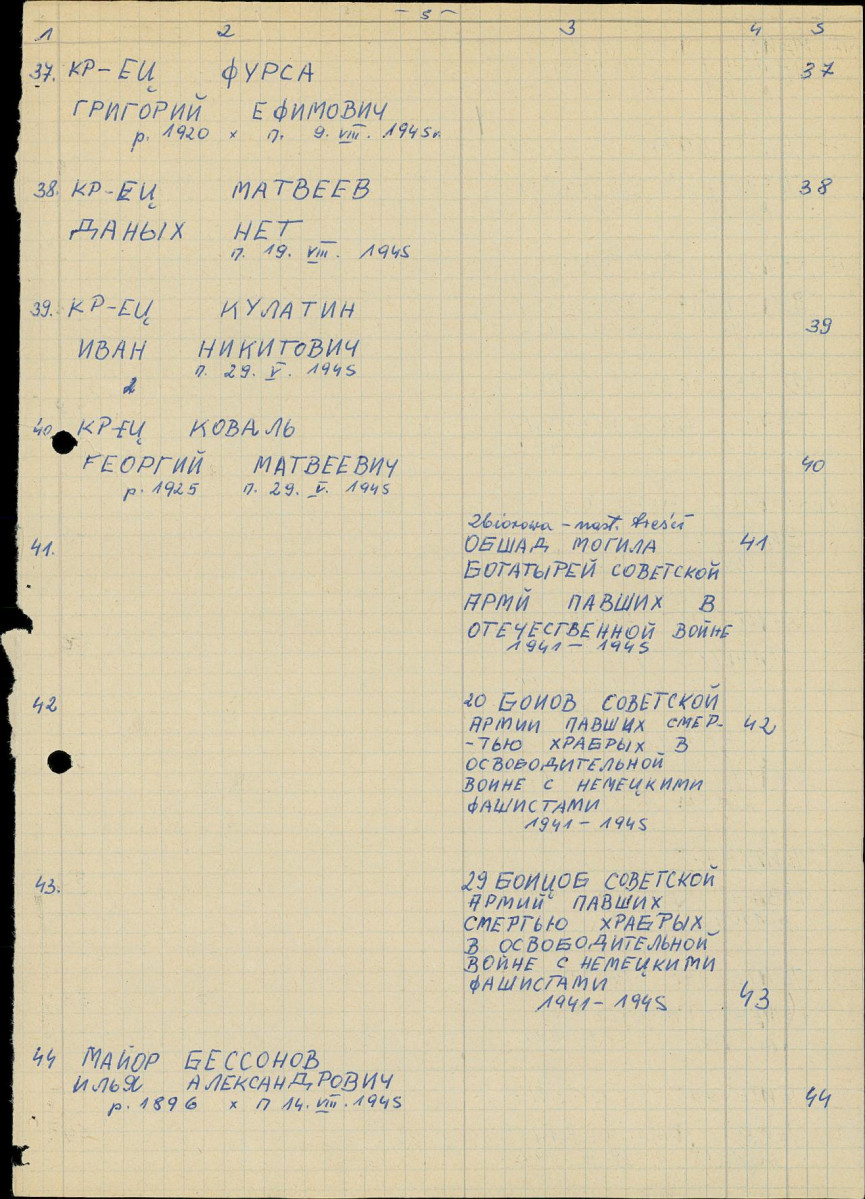 - 5 -
1 2 3 4 5
37. КР-ЕЦ ФУРСА 37
ГРИГОРИЙ ЕФИМОВИЧ
р. 1920 x п. 9. VIII. 1945г.
38. КР-ЕЦ МАТВЕЕВ 38
ДАНЫХ НЕТ
п. 19. VIII. 1945
39. КР-ЕЦ КУЛАТИН
39
ИВАН НИКИТОВИЧ
п. 29. V. 1945
2
40. КР-ЕЦ КОВАЛЬ
ГЕОРГИЙ МАТВЕЕВИЧ 40
р. 1925 п. 29. V. 1945
Zbiorowa - nast. treści
41. ОБШАД МОГИЛА 41
БОГАТЫРЕЙ СОВЕТСКОЙ
АРМЙ ПАВШИХ В
ОТЕЧЕСТВЕННОЙ ВОЙНЕ
1941 - 1945
42 20 БОИОВ СОВЕТСКОЙ
АРМИИ ПАВШИХ СМЕР- 42
-ТЬЮ ХРАБРЫХ В
ОСВОБОДИТЕЛЬНОЙ
ВОИНЕ С НЕМЕЦКИМИ
ФАШИСТАМИ
1941 - 1945
43. 29 БОИЦОБ СОВЕТСКОЙ
АРМИЙ ПАВШИХ
СМЕРТЬЮ ХРАБРЫХ
В ОСВОБОДИТЕЛЬНОЙ
ВОЙНЕ С НЕМЕЦКИМИ
ФАШИСТАМИ
1941 - 1945 43
44 МАЙОР БЕССОНОВ
ИЛЬЯ АЛЕКСАНДРОВИЧ
р. 1896 x п 14. VIII. 1945 44